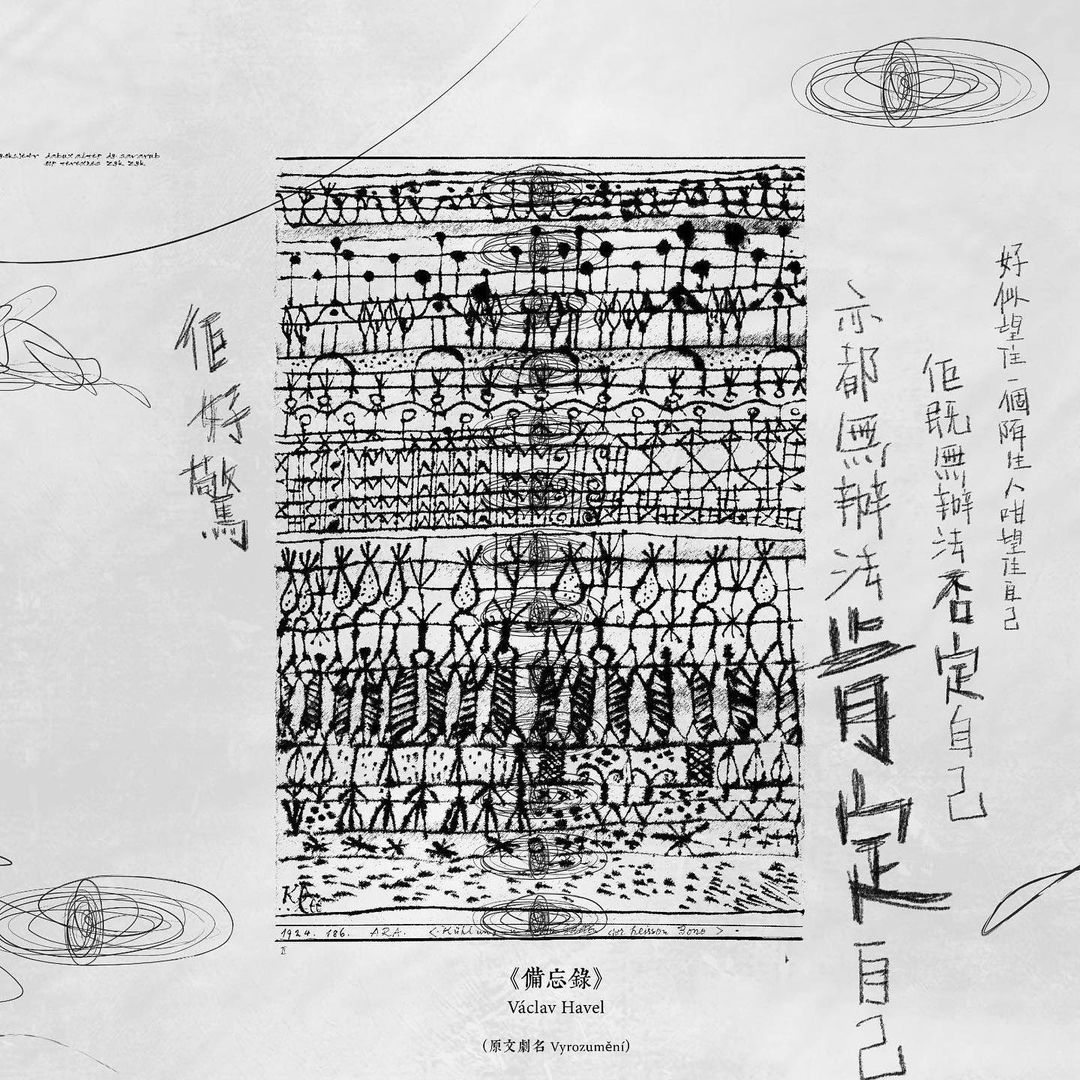 好似望住一個陌生人咁望住自己
佢既無辦法否定自己
亦都無辦法肯定自己
佢好驚
Klee
1924. 186. ARA. < Kühlung heissen Zone > .
《備忘錄》
Václav Havel
（原文劇名 Vyrozumění）